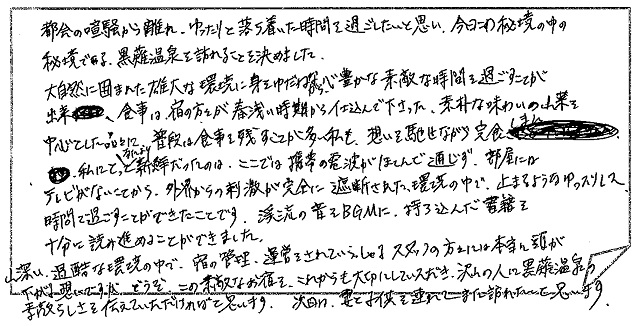 都会の喧騒から離れ、ゆったりと落ち着いた時間を過ごしたいと思い、今回この秘境の中の
秘境である、黒薙温泉を訪れることを決めました。
大自然に囲まれた雄大な環境に身をゆだねながら心豊かな素敵な時間を過ごすことが
出来、食事は、宿の方々が春浅い時期から仕込んで下さった、素朴な味わいの山菜を
中心とした品々に、普段は食事を残すことが多い私も、想いを馳せながら完食しました
。私にとってなにより新鮮だったのは、ここでは携帯の電波がほとんど通じず、部屋には
テレビがないことから、外界からの刺激が完全に遮断された環境の中で、止まるようなゆっくりした
時間で過ごすことができたことです。渓流の音をBGMに、持ち込んだ書籍を
十分に読み進めることができました。
山深い、過酷な環境の中で、宿の管理、運営をされていらっしゃるスタッフの方々には本当に頭が
下がる想いですが、どうぞ、この素敵なお宿を、これからも大切にしていただき、沢山の人に黒薙温泉の
素敵らしさを伝えていただければと思います。次回は、妻と子供を連れてまた訪れたいと思います。